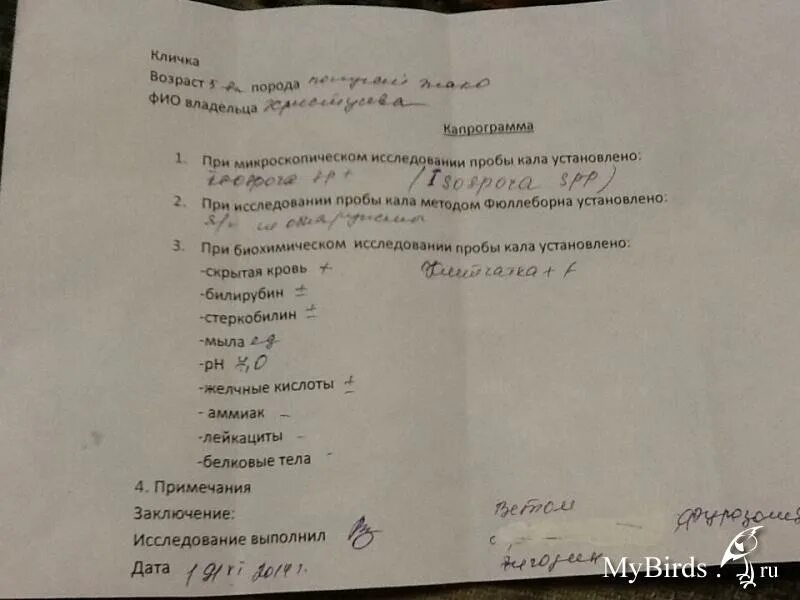 Кличка
Возраст 5 порода попугай жако
ФИО владельца
Капрограмма
1. При микроскопическом исследовании пробы кала установлено:
Isospora sp + (Isospora spp)
2. При исследовании пробы кала методом Фюллеборна установлено:
я/г не обнаружены
3. При биохимическом исследовании пробы кала установлено:
-скрытая кровь + Клетчатка + +
-билирубин ±
-стеркобилин ±
-мыла ед
-pH 7,0
-желчные кислоты ±
- аммиак –
-лейкациты –
-белковые тела –
4. Примечания
Заключение: Ветом
Исследование выполнил с
Дата 2014г.
MyBirds.ru